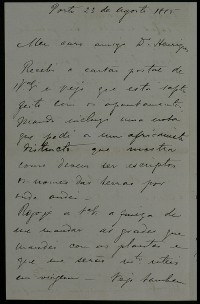 Porto 23 de Agosto 1885
Meu caro amigo Dr Henriques
Recebi o cartão postal de
V. e vejo que está satis
feito com os apontamentos.
Quando incluí uma nota
que pedi a um africanista
distincto que mostra
como devem ser escriptos
os nomes das terras por
onde andei.
Rogo a V. a fineza de
me mandar as guias que
mandei com as plantas e
que me serão muito uteis
em viagem. Vejo tambem